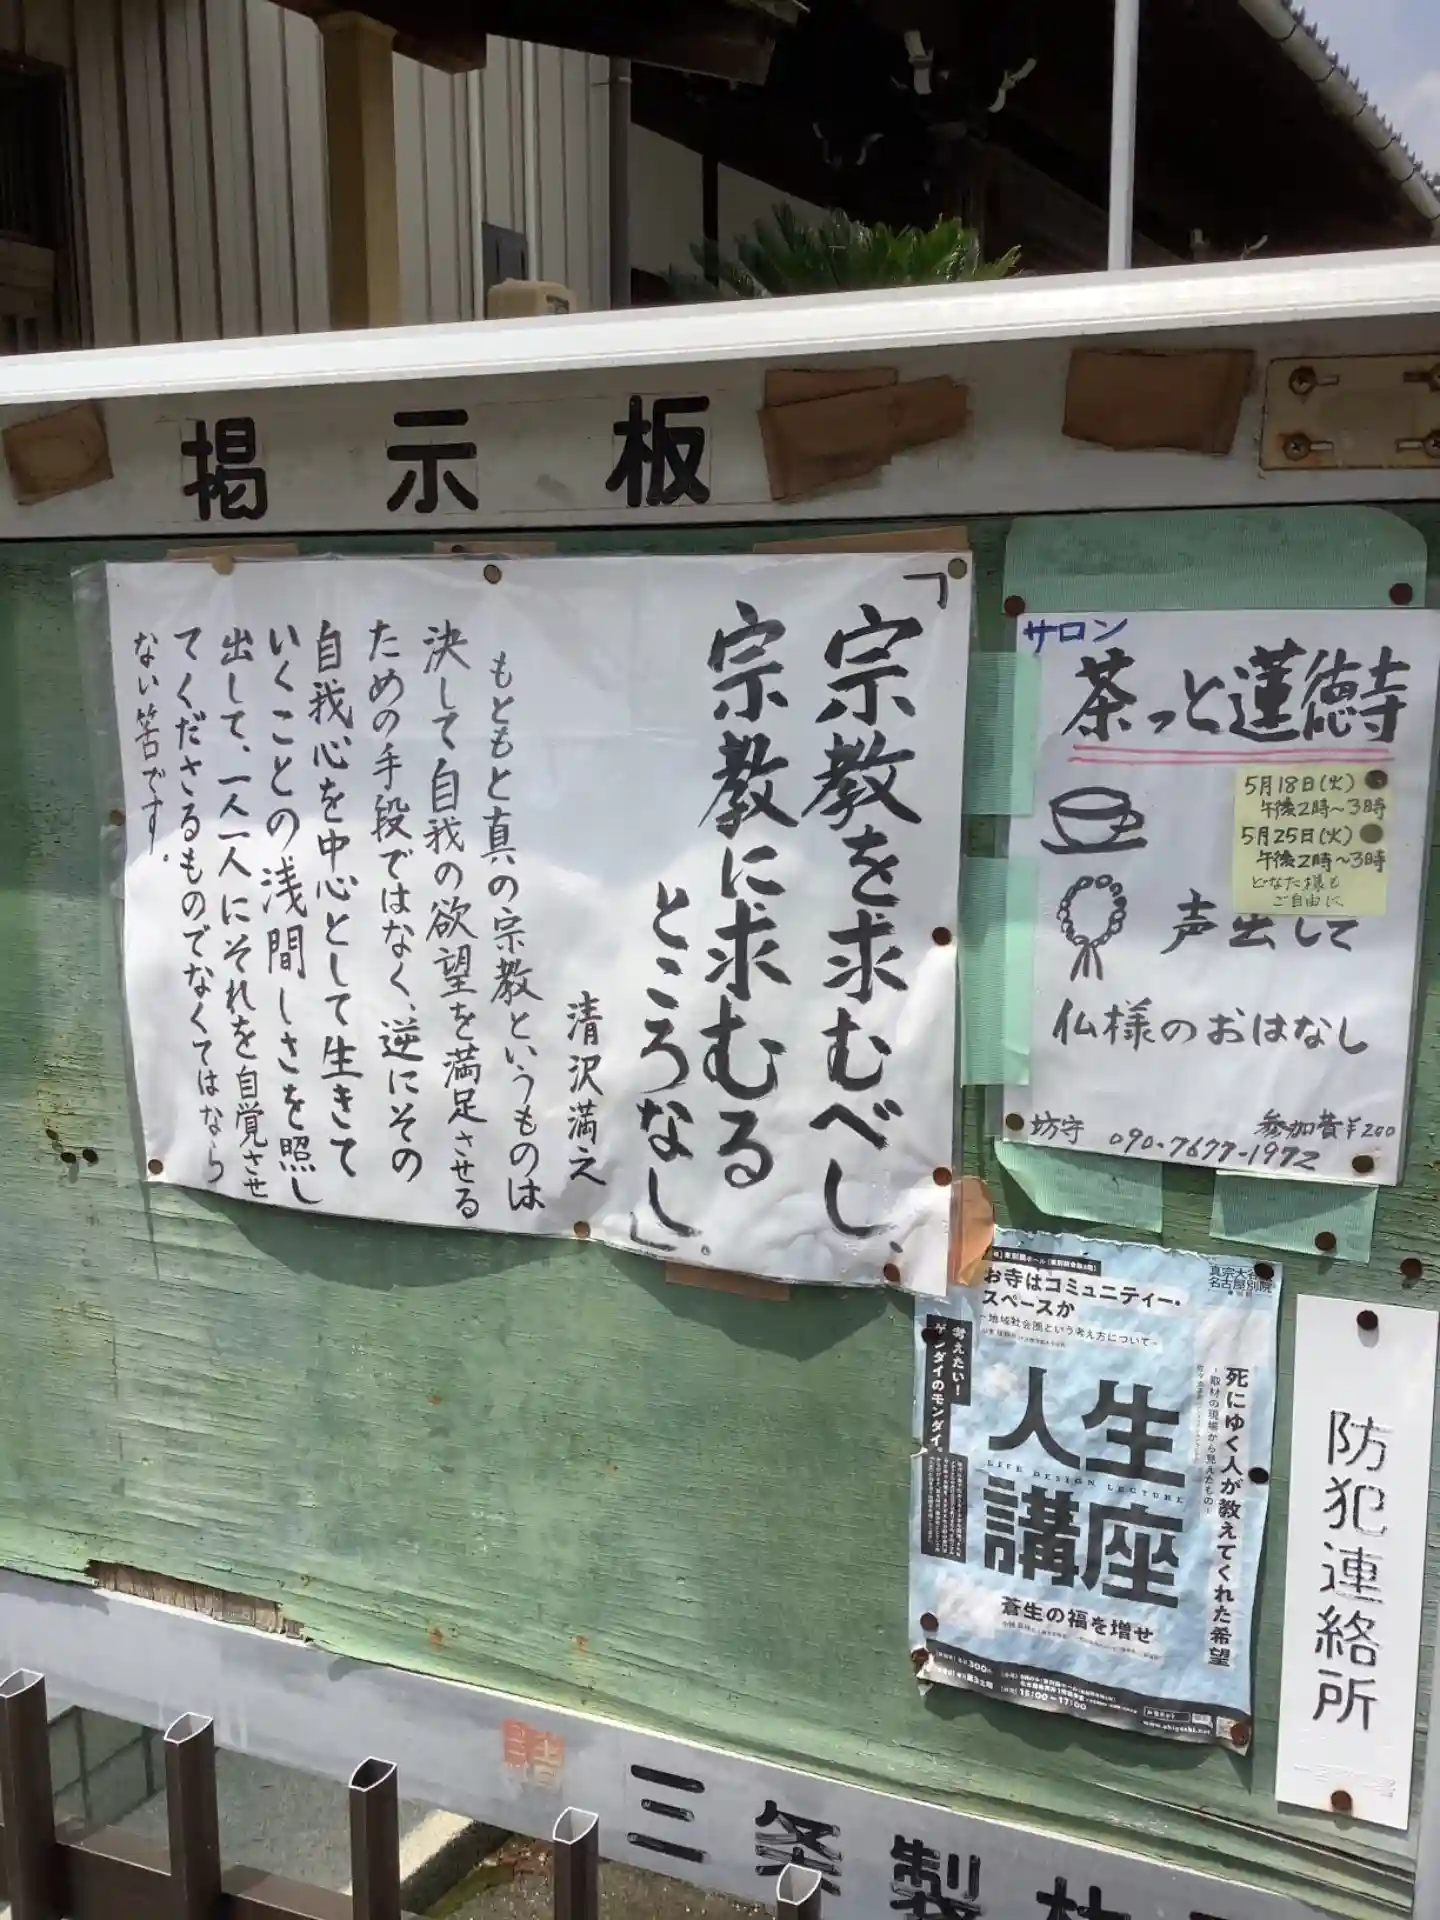 掲示板
「宗教を求むべし、
宗教に求むる
ところなし」。
清沢満之
もともと真の宗教というものは
決して自我の欲望を満足させる
ための手段ではなく、逆にその
自我心を中心として生きて
いくことの浅間しさを照し
出して、一人一人にそれを自覚させ
てくださるものでなくてはなら
ない筈です。
サロン
茶っと蓮徳寺
5月18日(火)
午後2時～3時
5月25日(火)
午後2時～3時
どなた様も
ご自由に
声出して
仏様のおはなし
参加費¥200
坊守 090-7677-1972
お寺はコミュニティー・
スペースか
-地域社会圏という考え方について-
真宗大谷
名古屋別院
考えたい!
ゲンダイのモンダイ。
死にゆく人が教えてくれた希望
-取材の現場から見えたもの-
人生
LIFE DESIGN LECTURE
講座
蒼生の福を増せ
300
15:00-17:00
防犯連絡所
三条製材